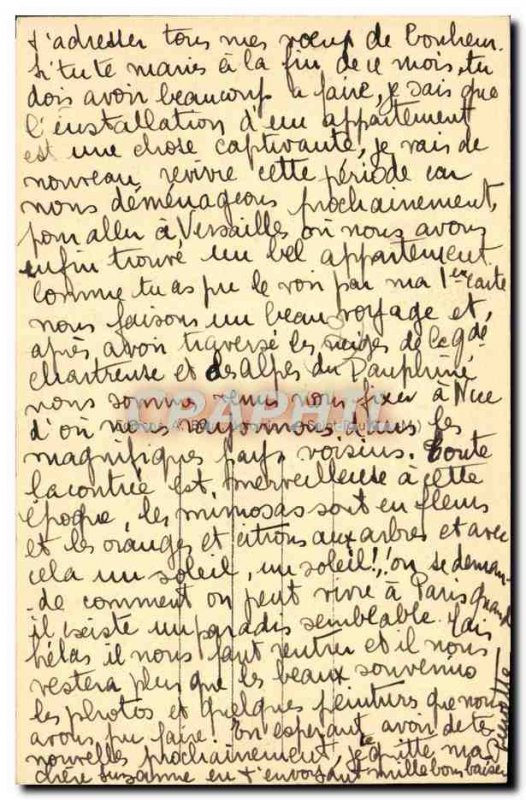 t'adresser tous mes vœux de bonheur.
Si tu te maries à la fin de ce mois, tu
dois avoir beaucoup à faire, je sais que
l'installation d'un appartement
est une chose captivante, je vais de
nouveau revivre cette période car
nous déménageons prochainement,
pour aller à Versailles où nous avons
enfin trouvé un bel appartement.
Comme tu as pu le voir par ma 1ère carte
nous faisons un beau voyage et,
après avoir traversé les neiges de la gde
Chartreuse et des Alpes du Dauphiné,
nous sommes venus nous fixer à Nice
d'où nous rayonnons dans les
magnifiques pays voisins. Toute
la contrée est merveilleuse à cette
époque, les mimosas sont en fleurs
et les oranges et citrons aux arbres et avec
cela un soleil, un soleil! on se deman-
-de comment on peut vivre à Paris quand
il existe un paradis semblable. Mais
hélas il nous faut rentrer et il nous
restera plus que les beaux souvenirs
les photos et quelques peintures que nous
avons pu faire. En espérant avoir de tes
nouvelles prochainement, je te quitte ma
chère Suzanne en t'envoyant mille bons baisers
CPAPHIL